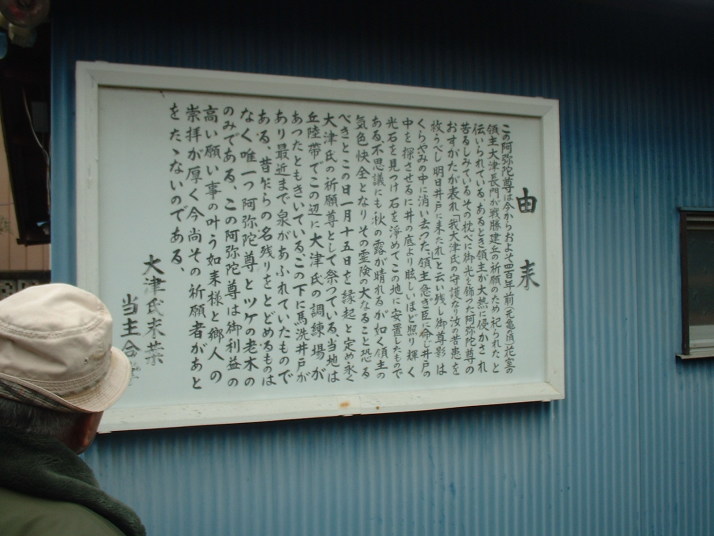 由来
この阿弥陀尊は今からおよそ四百年前(元亀の頃)花室の
領主大津長門が戦勝建立の祈願のため祀られたと
伝いられている、あるとき領主が大熱に侵かされ
苦るしみているその枕べに御光を飾った阿弥陀尊の
おすがたが表れ「我大津氏の守護なり汝の苦患を
救うべし明日井戸に来たれ」と云い残し御尊影は
くらやみの中に消い去つた、領主急ぎ臣に命じ井戸の
中を探させるに井の底より眩しいほど照り輝く
光石を見つけ石を浄めてこの地に安置したもので
ある、不思議にも秋の露が晴れるが如く領主の
気色快全となりその霊険の大なること恐る
べきとこの日一月十五日を縁起と定め永く
大津氏の祈願尊として祭つている、当地は
丘陸帯でこの辺に大津氏の調練場が
あつたともきいている、この下に馬洗井戸が
あり最近まで泉があふれていたもので
ある、昔からの名残りをとどめるものは
なく唯一つ阿弥陀尊とツケの老木の
のみである、この阿弥陀尊は御利益の
高い願い事の叶う如来様と郷人の
崇拝が厚く今尚その祈願者があと
をたゝないのである、
大津氏末葉
当主